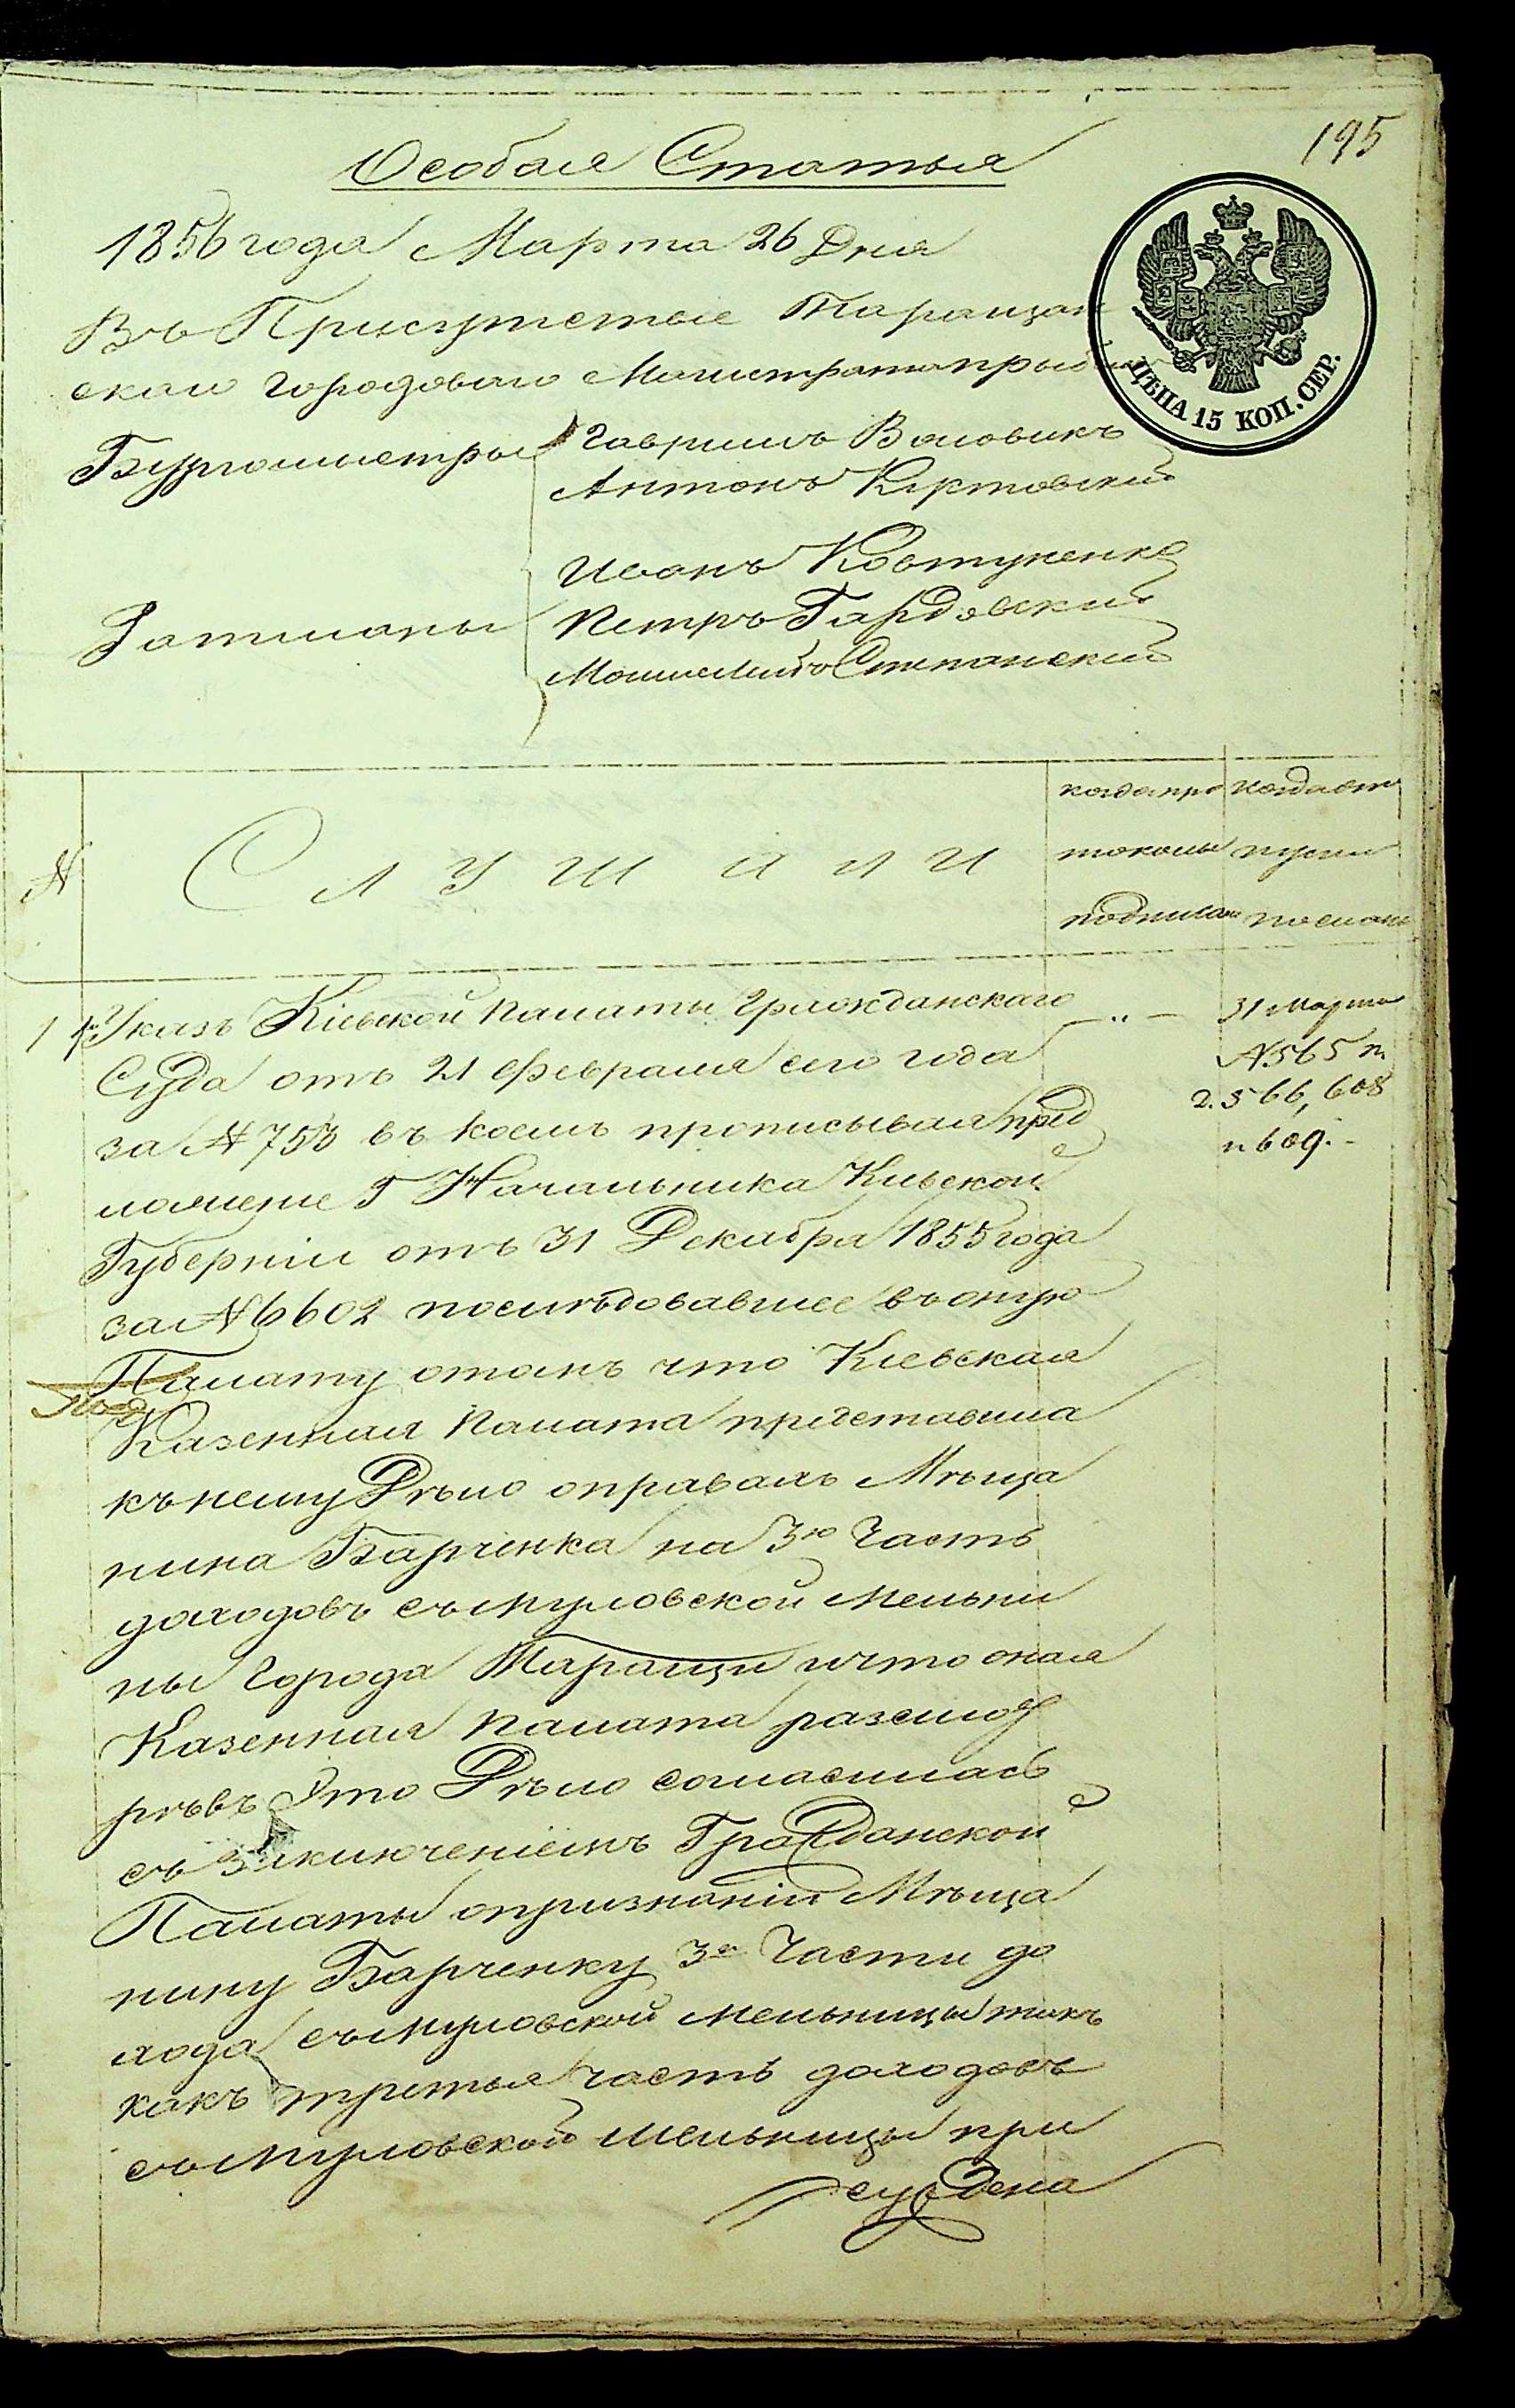 195
Особая Статья
1856 года Марта 26 Дня
Въ Присутствіе Таращан
скаго Городоваго Магистрата прибыли
Бургомистры
Гаврилъ Воловикъ
Антонъ
Ратманы
Иванъ Ковтуненко
Петръ Гардовскій
Степанскій
ЦѢНА 15 КОП. СЕР.
№
Слушали
когда про
токолы
подписаны
когда от
пуски
посланы
1
Указъ Кіевской Палаты Гражданскаго
Суда отъ 21 Февраля сего года
за № 753 въ коемъ прописывая пред
ложеніе Г Начальника Кіевской
Губерніи отъ 31 Декабра 1855 года
за № 6602 последовавшее въ оную
Палату отомъ что Кіевская
Казенная Палата представила
къ нему Дѣло оправахъ Мѣща
нина Барченка на 3ю Часть
доходовъ съ Муловской Мельни
цы Города Таращи ичто оная
Казенная Палата разсмот
рѣвъ Это Дѣло согласилась
съ заключеніемъ Гражданской
Палаты опризнаніи Мѣща
нину Барченку 3й Части до
хода съ Муловской Мельницы такъ
какъ третья часть доходовъ
съ Муловской Мельницы при
суждена
31 Марта
№ 565 п.
2. 566, 608
и 609.-